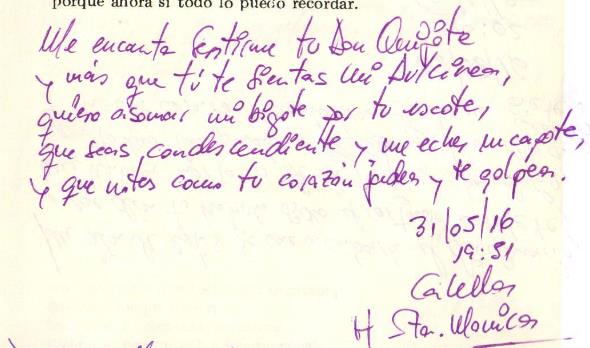 porque ahora sí todo lo puedo recordar.
Me encanta sentirme tu Don Quijote
y más que tú te sientas mi Dulcinea,
quiero asomar mi bigote por tu escote,
que seas condescendiente y me eches un capote,
y que notes como tu corazón jadea y te golpea.
31/05/16
19:51
Calella
H Sta. Monica